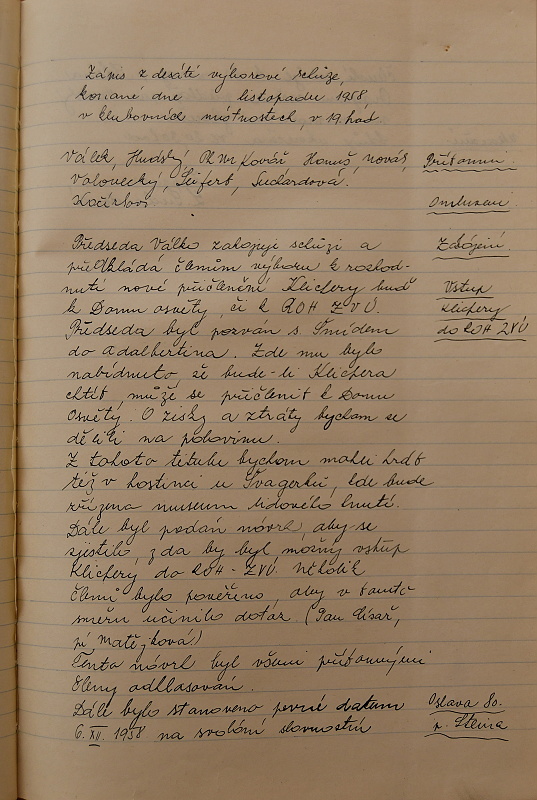 Zápis z desáté výborové schůze,
konané dne listopadu 1958
v klubovních místnostech, v 19. hod.
Válek, Hudský, Kovář Hanuš, Novák, Přítomni.
Volovecký, Seifert, Sudardová.
Omluveni
Předseda Válko zahajuje schůzi a Zahájení.
předkládá členům výboru k rozhod-
nutí nové přičlenění Klicpery buď Vstup
k Domu osvěty, či k ROH ZVÚ. Klicpery
Předseda byl pozván s. Šmídem do ROH ZVÚ
do Adalbertina. Zde mu bylo
nabídnuto, že bude-li Klicpera
chtít, může se přičlenit k Domu
Osvěty. O zisky a ztráty bychom se
dělili na polovinu.
Z tohoto titulu bychom mohli hrát
též v hostinci u Švagerků, kde bude
zřízena museum lidového hnutí.
Dále byl podán návrh, aby se
zjistilo, zda by byl možný vstup
Klicpery do ROH - ZVÚ. Několik
členů bylo pověřeno, aby v tomto
směru učinilo dotaz. (Pan Císař,
pí Matějková!)
Tento návrh byl všemi přítomnými
členy odhlasován.
Dále bylo stanoveno pevné datum Oslava 80.
6. XII. 1958 na svolání slavnostní p. Steina